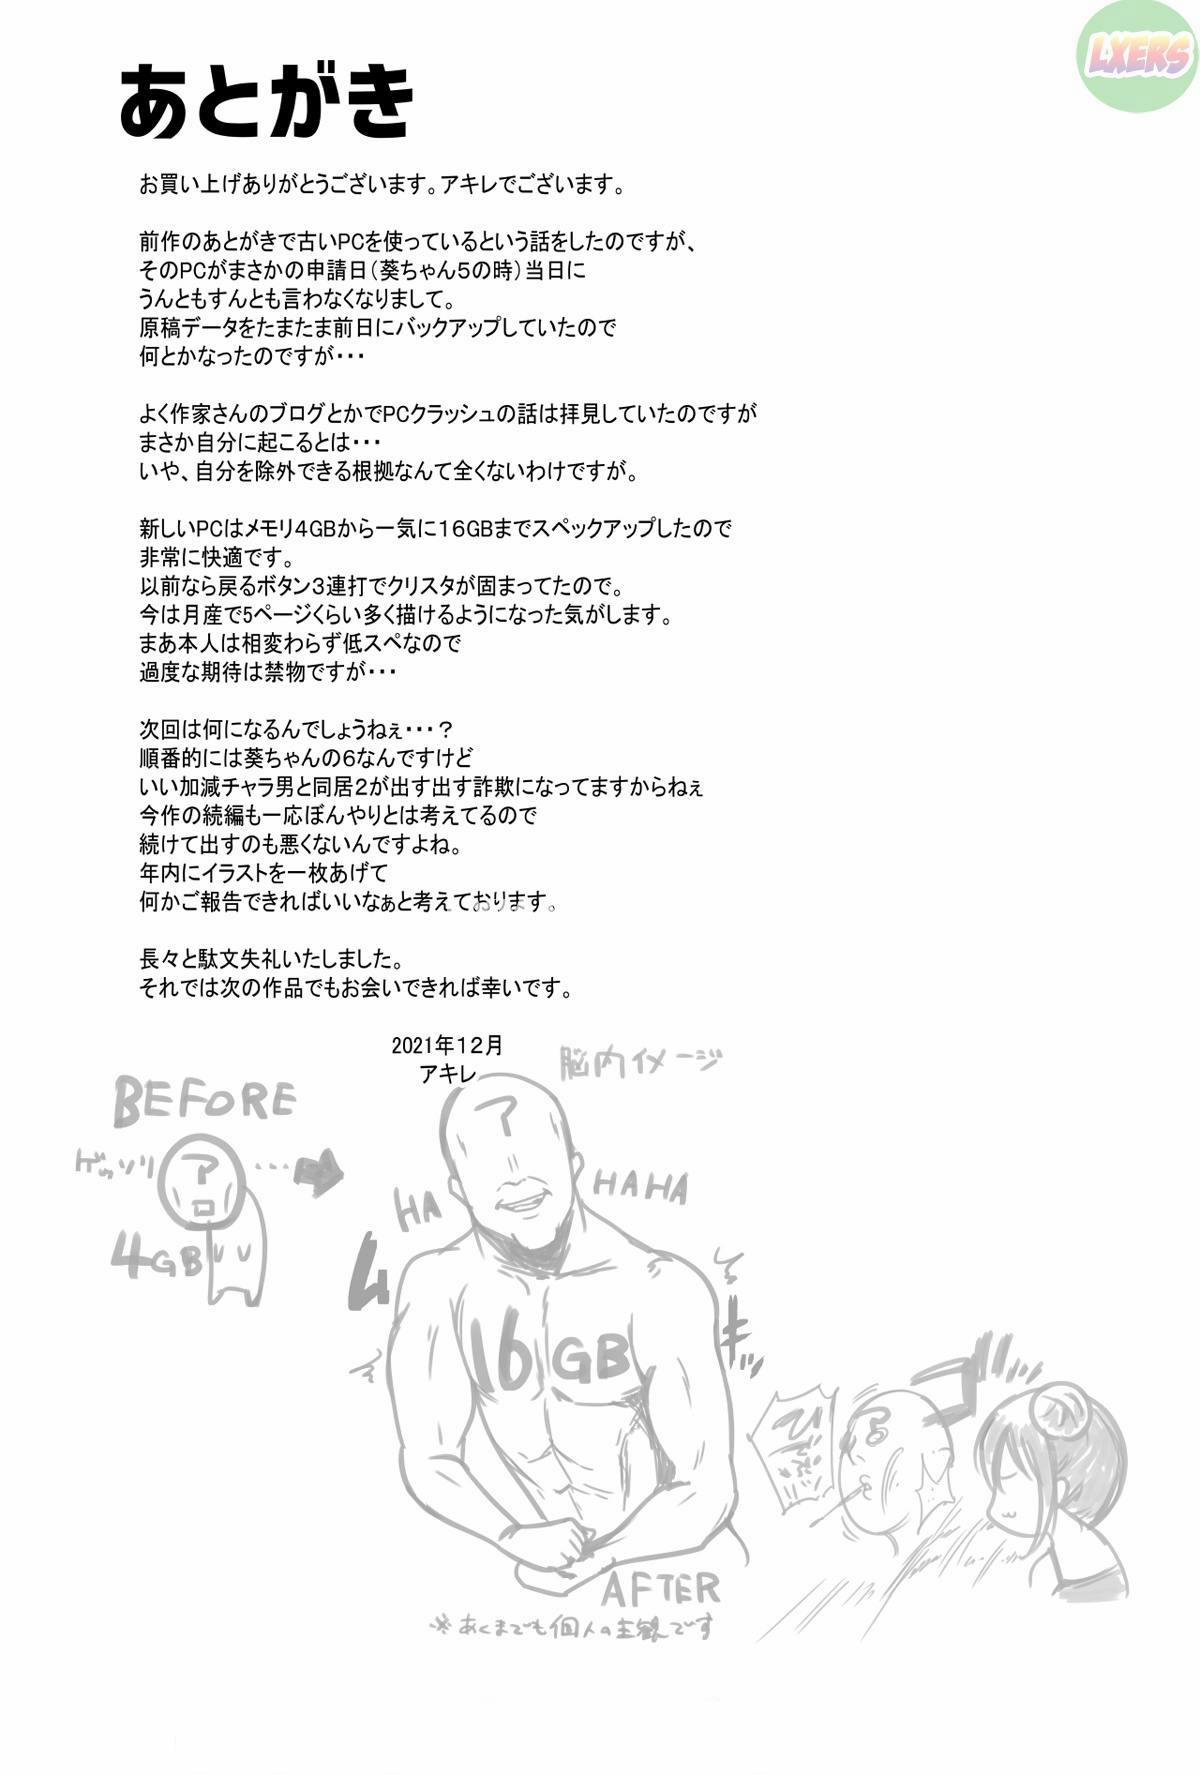 LXERS
あとがき
お買い上げありがとうございます。アキレでございます。
前作のあとがきで古いPCを使っているという話をしたのですが、
そのPCがまさかの申請日（葵ちゃん5の時）当日に
うんともすんとも言わなくなりまして。
原稿データをたまたま前日にバックアップしていたので
何とかなったのですが・・・
よく作家さんのブログとかでPCクラッシュの話は拝見していたのですが
まさか自分に起こるとは・・・
いや、自分を除外できる根拠なんて全くないわけですが。
新しいPCはメモリ4GBから一気に16GBまでスペックアップしたので
非常に快適です。
以前なら戻るボタン3連打でクリスタが固まってたので。
今は月産で5ページくらい多く描けるようになった気がします。
まあ本人は相変わらず低スペなので
過度な期待は禁物ですが・・・
次回は何になるんでしょうねぇ・・・？
順番的には葵ちゃんの6なんですけど
いい加減チャラ男と同居2が出す出す詐欺になってますからねぇ
今作の続編も一応ぼんやりとは考えてるので
続けて出すのも悪くないんですよね。
年内にイラストを一枚あげて
何かご報告できればいいなぁと考えております。
長々と駄文失礼いたしました。
それでは次の作品でもお会いできれば幸いです。
2021年12月
アキレ
脳内イメージ
BEFORE
ゲッソリ
ア
ロ
4GB
ア
HA
HAHA
ム
キッ
16GB
AFTER
※あくまでも個人の主観です
ア